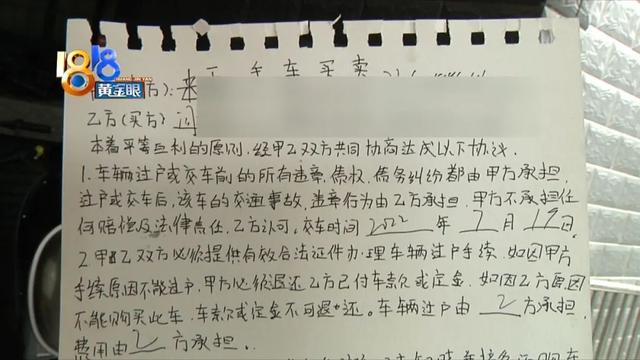 1818
黄金眼
二手车买卖
方):
乙方(买方)
本着平等互利的原则,经甲乙双方共同协商达成以下协议.
1.车辆过户或交车前的所有违章,债权,债务纠纷都由甲方承担.
过户或交车后,该车的交通事故,违章行为由乙方承担.甲方不承担任
何赔偿及法律责任.乙方认可,交车时间2022年 月19日.
2.甲乙双方必须提供有效合法证件办理车辆过户手续.如因甲方
手续原因不能过户.甲方必须退还乙方已付车款或定金.如因乙方原因
不能购买此车.车款或定金不可退还。车辆过户由乙方承担.
费用由乙方承担.